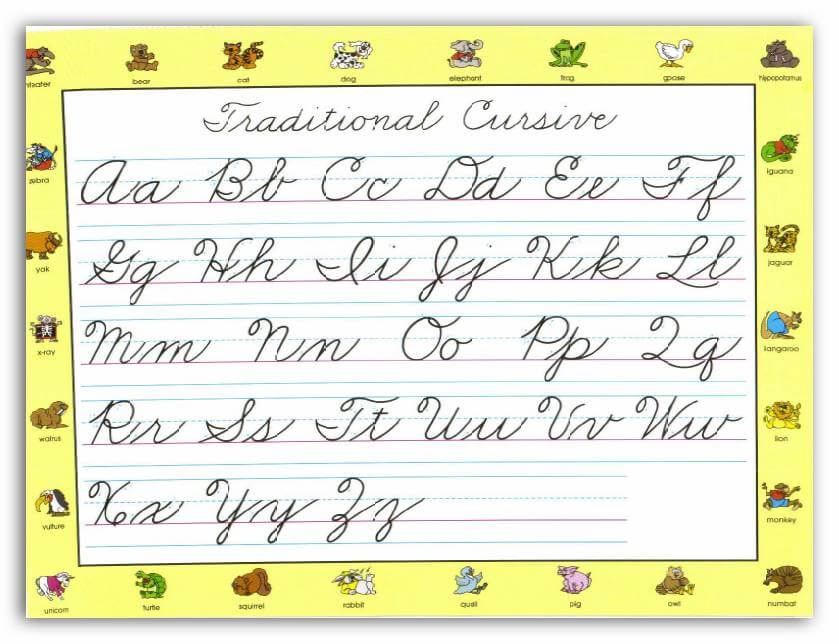 nteater bear cat dog elephant frog goose hippopotamus
Traditional Cursive
Aa Bb Cc Dd Ee Ff
zebra iguana
Gg Hh Ii Jj Kk Ll
yak jaguar
Mm Nn Oo Pp Qq
x-ray kangaroo
Rr Ss Tt Uu Vv Ww
walrus lion
Xx Yy Zz
vulture monkey
unicorn turtle squirrel rabbit quail pig owl numbat